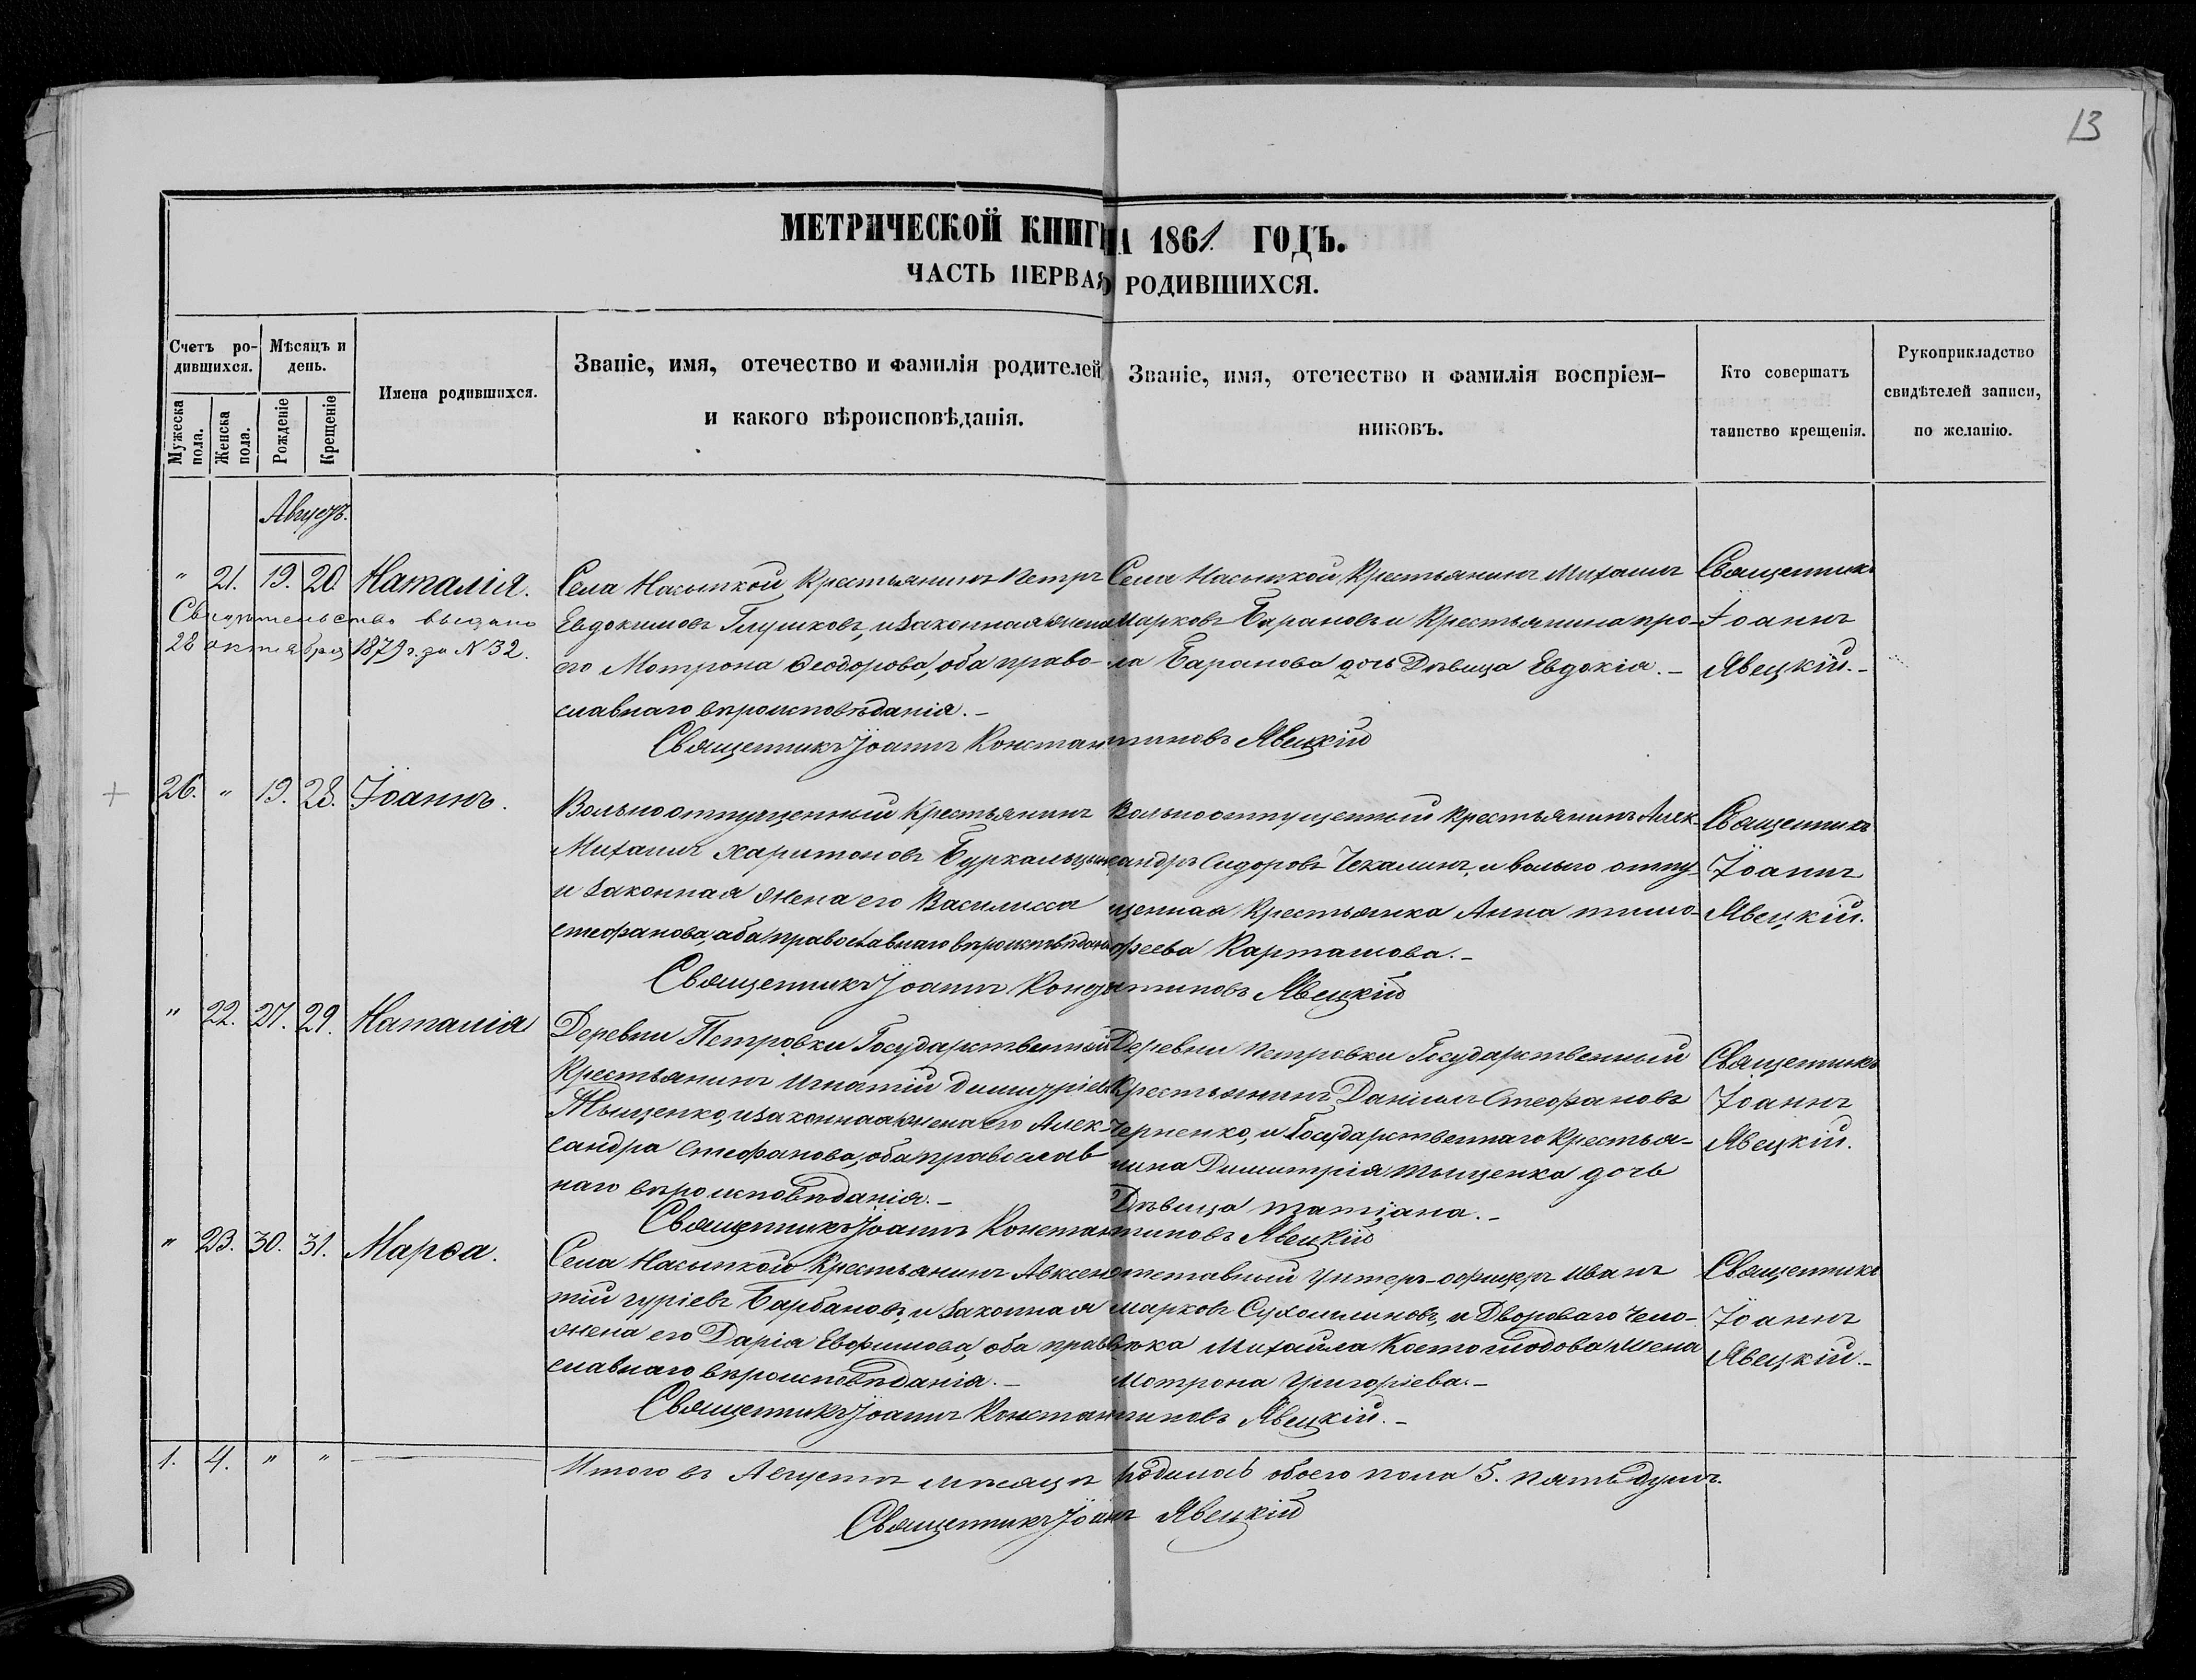 13
МЕТРИЧЕСКОЙ КНИГИ НА 1861. ГОДЪ.
ЧАСТЬ ПЕРВАЯ О РОДИВШИХСЯ.
Счетъ ро-
дившихся.
Мужеска пола.
Женска пола.
Мѣсяцъ и
день.
Рожденіе
Крещеніе
Имена родившихся.
Званіе, имя, отечество и фамилія родителей
и какого вѣроисповѣданія.
Званіе, имя, отечество и фамилія воспріем-
никовъ.
Кто совершатъ
таинство крещенія.
Рукоприкладство
свидѣтелей записи,
по желанію.
Августъ.
" 21. 19. 20. Наталія.
Свидѣтельство выдано
28 октября 1879 г. за N 32.
Села Насыпкой Крестьянинъ Петръ
Евдокимовъ Глушковъ, и законная жена
его Мотрона Ѳеодорова, оба право-
славнаго вѣроисповѣданія. –
Села Насыпкой, Крестьянинъ Михаилъ
Марковъ Барановъ и Крестьянина про-
ла Баранова дочь Дѣвица Евдокія. –
Священникъ
Іоаннъ
Явецкій. –
Священникъ Іоаннъ Константиновъ Явецкій
26. " 19. 28. Іоаннъ.
Вольноотпущенный Крестьянинъ
Михаилъ Харитоновъ
и законная жена его Василисса
Стефанова, оба православнаго вѣроисповѣданія
Вольноотпущенный Крестьянинъ Алек-
сандръ Сидоровъ Чекалинъ, и вольно отпу-
щенная Крестьянка Анна Тимо-
феева Карташова. –
Священникъ
Іоаннъ
Явецкій.
Священникъ Іоаннъ Константиновъ Явецкій
" 22. 27. 29. Наталія
Деревни Петровки Государственный
Крестьянинъ Игнатій Димитріевъ
Тыщенко, и законная жена его Алек-
сандра Стефанова, оба православ
наго вѣроисповѣданія. –
Деревни Петровки Государственный
Крестьянинъ Даніилъ Стефановъ
Черненко, и Государственнаго Крестья-
нина Димитрія Тыщенка дочь
Дѣвица Татіана. –
Священникъ
Іоаннъ
Явецкій.
Священникъ Іоаннъ Константиновъ Явецкій
" 23. 30. 31. Марѳа.
Села Насыпкой Крестьянинъ Авксен
тій Гуріевъ Барбановъ, и законная
жена его Дарія Евфимова, оба право
славнаго вѣроисповѣданія. –
Отставный Унтеръ-офицеръ Иванъ
Марковъ Сухомлиновъ, и Двороваго Чело-
вѣка Михаила жена
Мотрона Григоріева. –
Священникъ
Іоаннъ
Явецкій. –
Священникъ Іоаннъ Константиновъ Явецкій. –
1. 4. " " —
Итого въ Августѣ мѣсяцѣ родилось обоего пола 5. пять душъ.
Священникъ Іоаннъ Явецкій